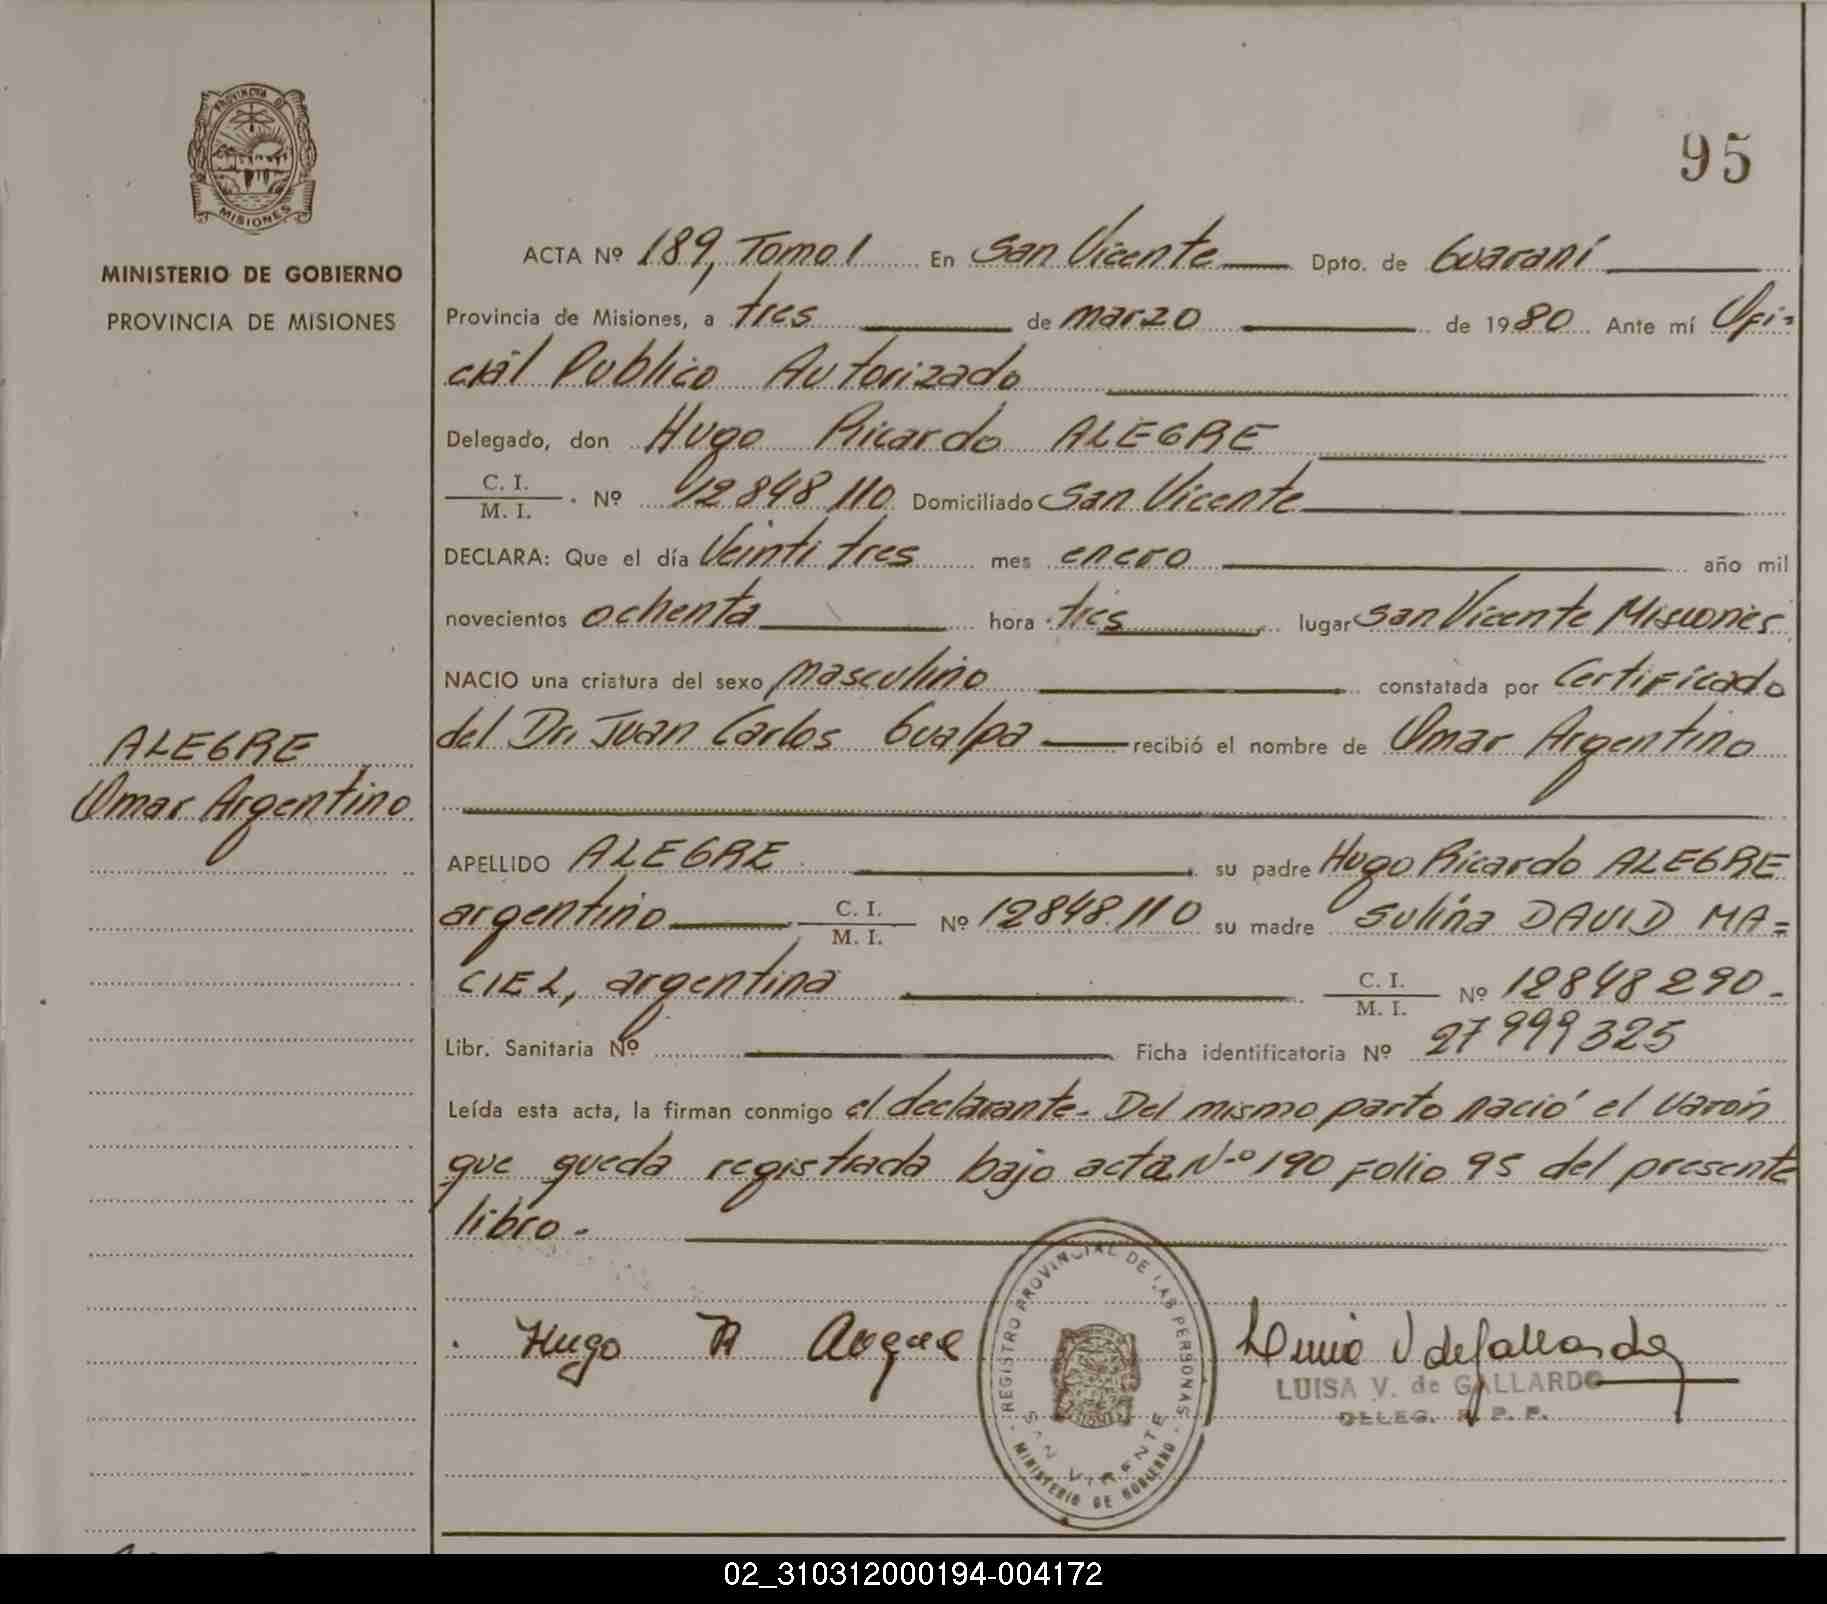 PROVINCIA DE
MISIONES
MINISTERIO DE GOBIERNO
PROVINCIA DE MISIONES
95
ACTA Nº 189, Tomo I En San Vicente Dpto. de Guaraní
Provincia de Misiones, a tres de marzo de 1980 Ante mí Ofi-
cial Publico Autorizado
Delegado, don Hugo Ricardo ALEGRE
C. I.
M. I. Nº 12848110 Domiciliado San Vicente
DECLARA: Que el día Veinti tres mes enero año mil
novecientos ochenta hora tres lugar San Vicente Misiones
NACIO una criatura del sexo masculino constatada por Certificado
del Dr. Juan Carlos Gualpa recibió el nombre de Omar Argentino
ALEGRE
Omar Argentino
APELLIDO ALEGRE su padre Hugo Ricardo ALEGRE
argentino C. I.
M. I. Nº 12848.110 su madre Sulina DAVID MA=
CIEL, argentina C. I.
M. I. Nº 12848290-
Libr. Sanitaria Nº Ficha identificatoria Nº 27999325
Leída esta acta, la firman conmigo el declarante- Del mismo parto nació el varón
que queda registrada bajo acta Nº 190 Folio 95 del presente
libro-
Hugo R
REGISTRO PROVINCIAL DE LAS PERSONAS
SAN VICENTE
MINISTERIO DE GOBIERNO
LUISA V. de GALLARDO
DELEG. R. P. P.
02_310312000194-004172